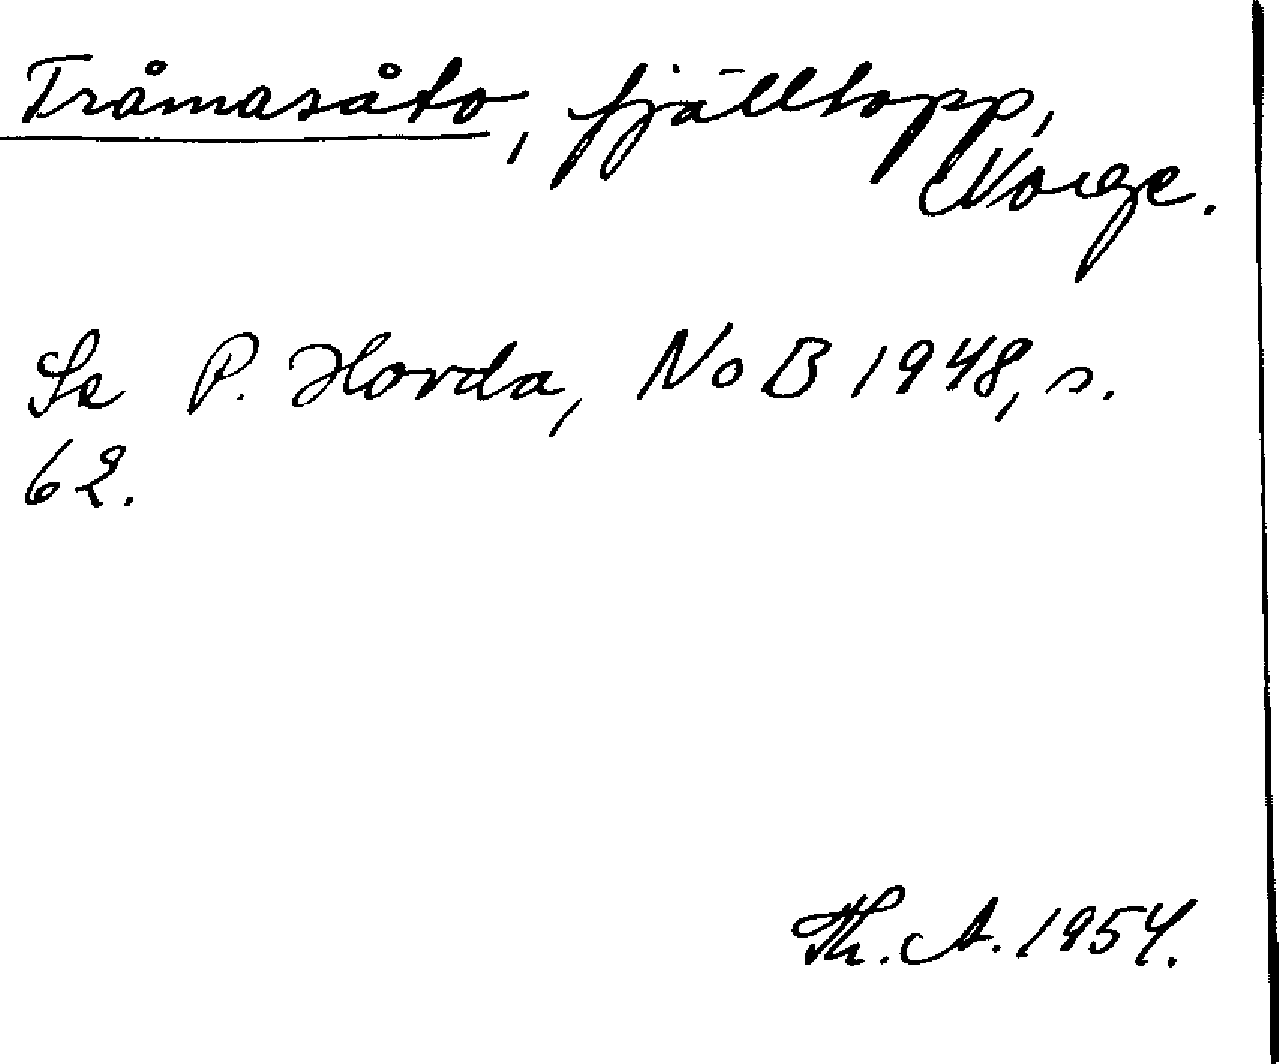 Tråmasåto, fjälltopp,
Norge.
Se P. Horda, NoB 1948, s.
62.
Th. A. 1954.